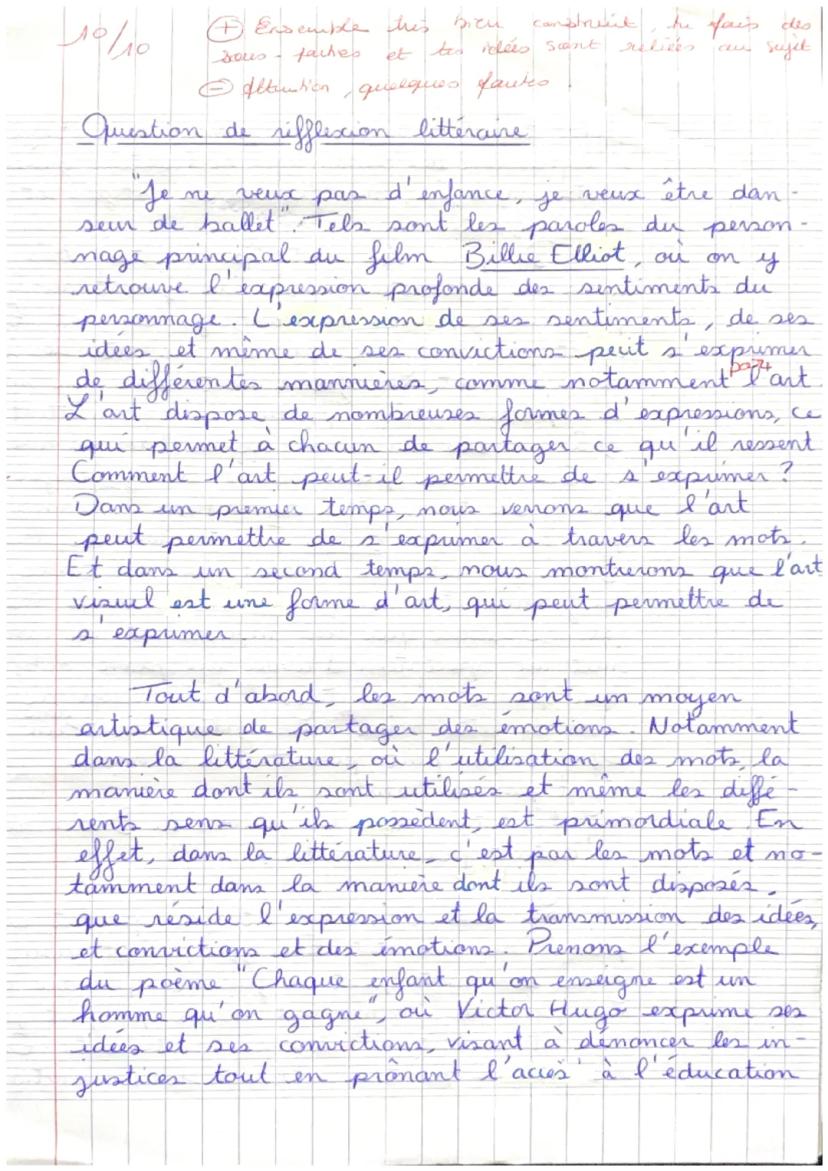 10/10
⊕ Ensemble très bien construit, tu fais des
sous-parties et tes idées sont reliées au sujet
⊖ Attention, quelques fautes.
Question de réfflexion littéraire
"Je ne veux pas d'enfance, je veux être dan-
seur de ballet". Tels sont les paroles du person-
nage principal du film Billie Elliot, où on y
retrouve l'expression profonde des sentiments du
personnage. L'expression de ses sentiments, de ses
idées et même de ses convictions peut s'exprimer
de différentes mannières, comme notamment par l'art.
L'art dispose de nombreuses formes d'expressions, ce
qui permet à chacun de partager ce qu'il ressent
Comment l'art peut-il permettre de s'exprimer ?
Dans un premier temps, nous verrons que l'art
peut permettre de s'exprimer à travers les mots.
Et dans un second temps, nous montrerons que l'art
visuel est une forme d'art, qui peut permettre de
s'exprimer.
Tout d'abord, les mots sont un moyen
artistique de partager des émotions. Notamment
dans la littérature, où l'utilisation des mots, la
manière dont ils sont utilisés et même les diffé-
rents sens qu'ils possèdent, est primordiale. En
effet, dans la littérature, c'est par les mots et no-
tamment dans la manière dont ils sont disposés,
que réside l'expression et la transmission des idées,
et convictions et des émotions. Prenons l'exemple
du poème "Chaque enfant qu'on enseigne est un
homme qu'on gagne", où Victor Hugo exprime ses
idées et ses convictions, visant à dénoncer les in-
justices tout en prônant l'accès à l'éducation